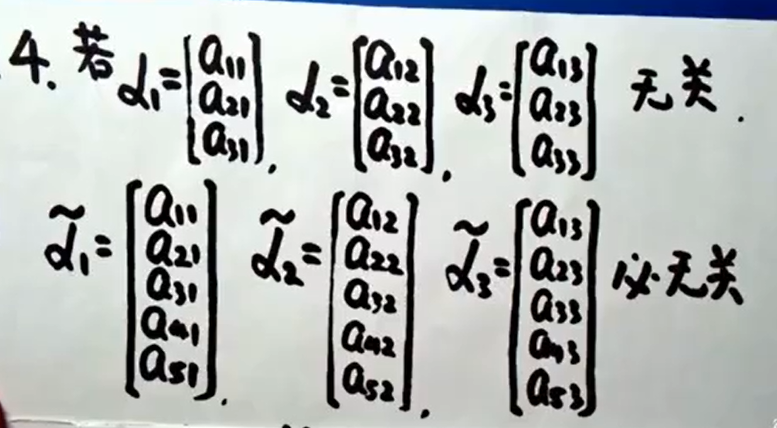 4. 若 α₁=[a₁₁ a₂₁ a₃₁], α₂=[a₁₂ a₂₂ a₃₂], α₃=[a₁₃ a₂₃ a₃₃] 无关.
α̃₁=[a₁₁ a₂₁ a₃₁ a₄₁ a₅₁], α̃₂=[a₁₂ a₂₂ a₃₂ a₄₂ a₅₂], α̃₃=[a₁₃ a₂₃ a₃₃ a₄₃ a₅₃] 必无关